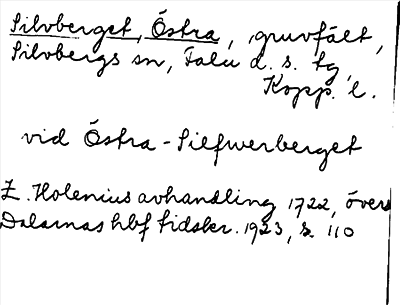 Silvberget, Östra, gruvfält,
Silvbergs sn, Falu d. s. tg,
Kopp. l.
vid Östra-Silfwerberget
Z. Holenius avhandling 1722, övers
Dalarnas hbf tidskr. 1923, s. 110